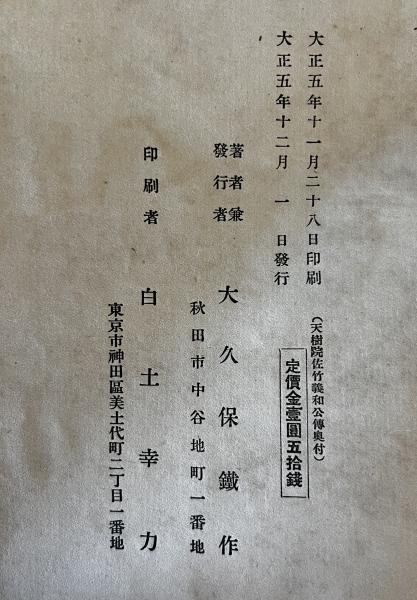 大正五年十一月二十八日印刷
大正五年十二月一日發行
(天樹院佐竹義和公傳奥付)
定價金壹圓五拾錢
著者兼
發行者
大久保鐵作
秋田市中谷地町一番地
印刷者
白土幸力
東京市神田區美土代町二丁目一番地